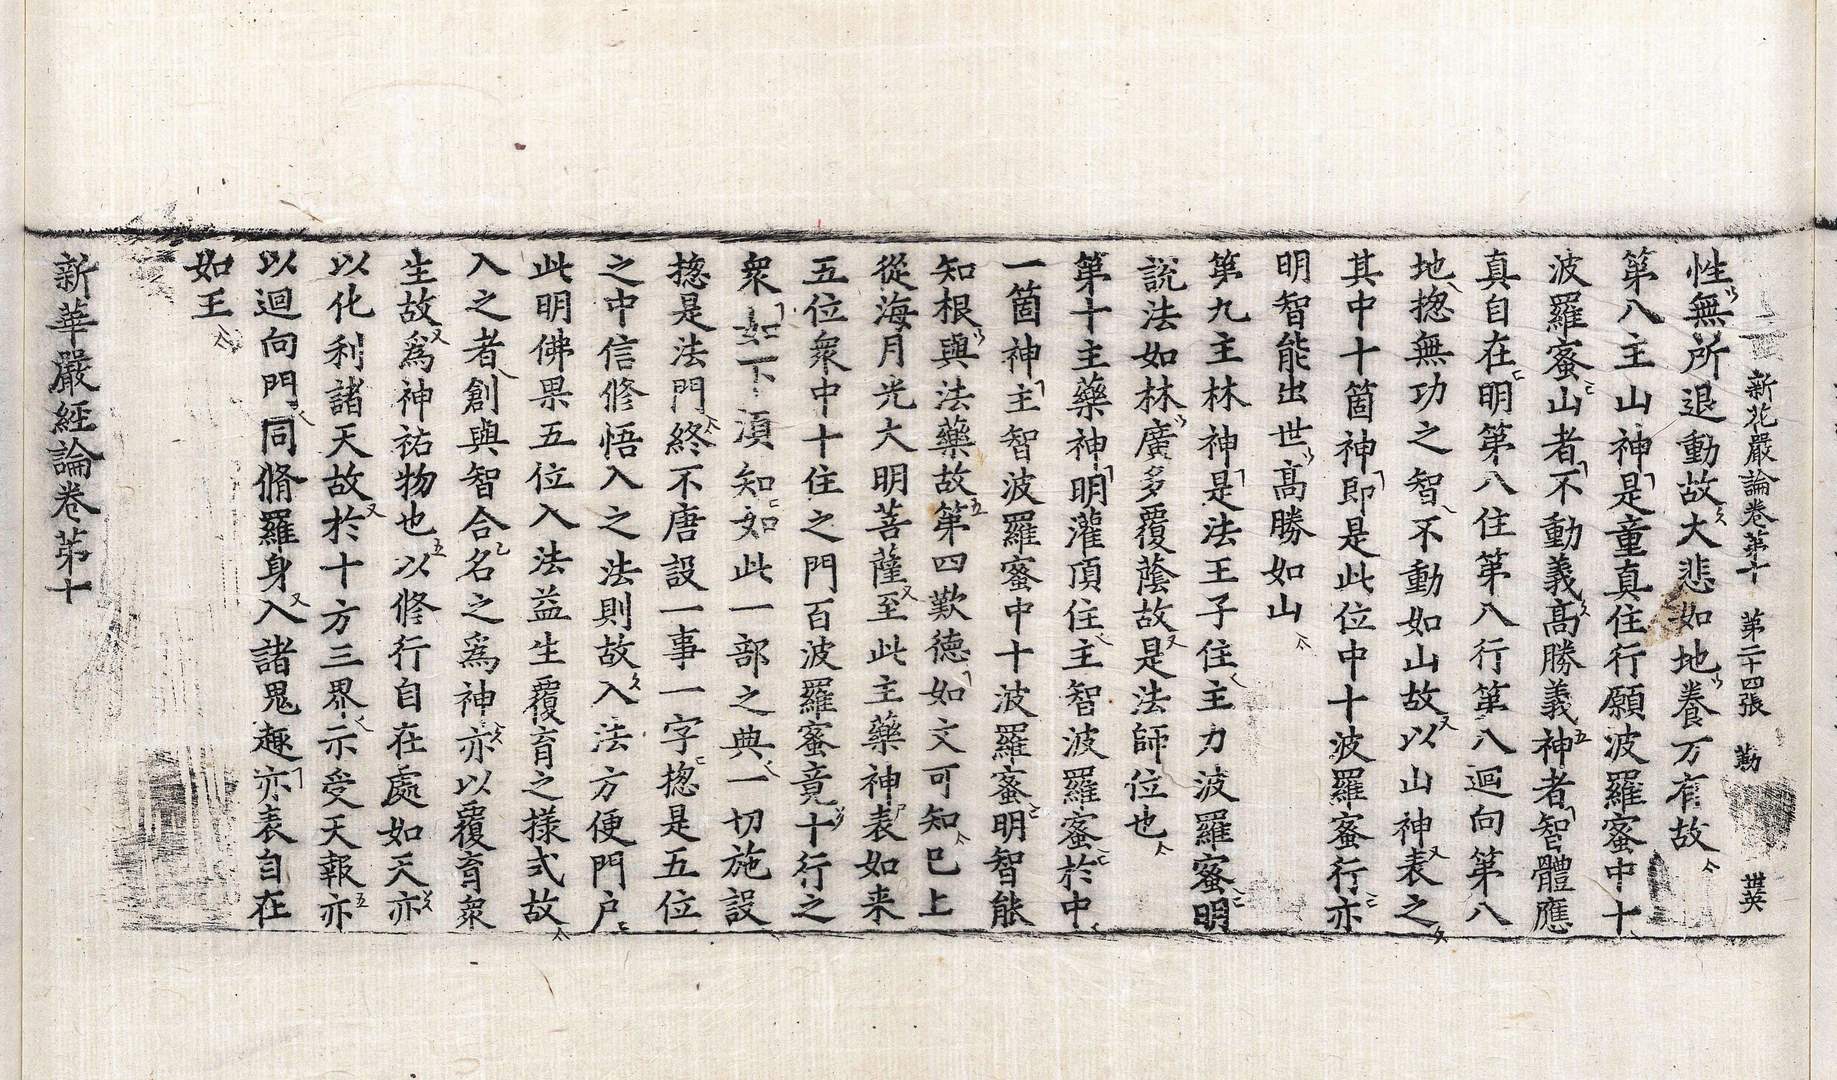 新花嚴論卷第十 第二十四張 勤 世英
性無所退動故大悲如地養万有故
第八主山神是童真住行願波羅蜜中十
波羅蜜山者不動義高勝義神者智體應
真自在明第八住第八行第八迴向第八
地揔無功之智不動如山故以山神表之
其中十箇神即是此位中十波羅蜜行亦
明智能出世高勝如山
第九主林神是法王子住主力波羅蜜明
說法如林廣多覆蔭故是法師位也
第十主藥神明灌頂住主智波羅蜜於中
一箇神主智波羅蜜中十波羅蜜明智能
知根與法藥故第四歎德如文可知已上
從海月光大明菩薩至此主藥神表如来
五位衆中十住之門百波羅蜜竟十行之
衆如下湏知如此一部之典一切施設
揔是法門終不唐設一事一字揔是五位
之中信修悟入之法則故入法方便門户
此明佛果五位入法益生覆育之樣式故
入之者創與智合名之爲神亦以覆育衆
生故爲神祐物也以修行自在處如天亦
以化利諸天故於十方三界示受天報亦
以迴向門同脩羅身入諸鬼趣亦表自在
如王
新華嚴經論卷第十